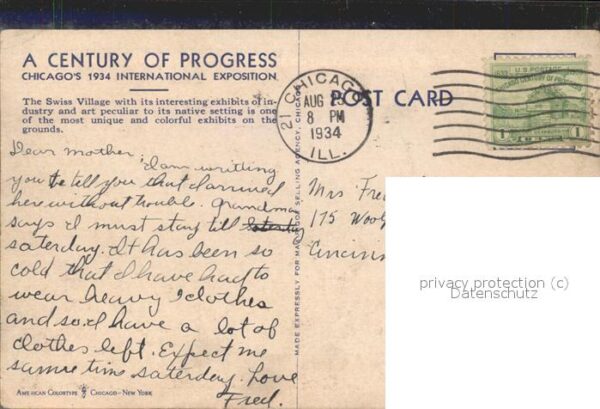 A CENTURY OF PROGRESS
CHICAGO'S 1934 INTERNATIONAL EXPOSITION
The Swiss Village with its interesting exhibits of in-
dustry and art peculiar to its native setting is one
of the most unique and colorful exhibits on the
grounds.
Dear mother,
I am writting
you to tell you that I arrived
here without trouble. Grandma
says I must stay till
saturday. It has been so
cold that I have had to
wear heavy clothes
and so I have a lot of
clothes left. Expect me
same time saturday. Love
Fred.
AMERICAN COLORTYPE CHICAGO-NEW YORK
MADE EXPRESSLY FOR SELLING AGENCY, CHICAGO
21 CHICAGO
AUG 23
8 PM
1934
ILL.
POST CARD
U.S. POSTAGE
1 1
Mrs Fre
175 Woo
Cincinn
privacy protection (c)
Datenschutz